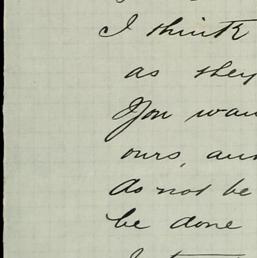 I think
as they
You wan
ours, aun
do not be
be done